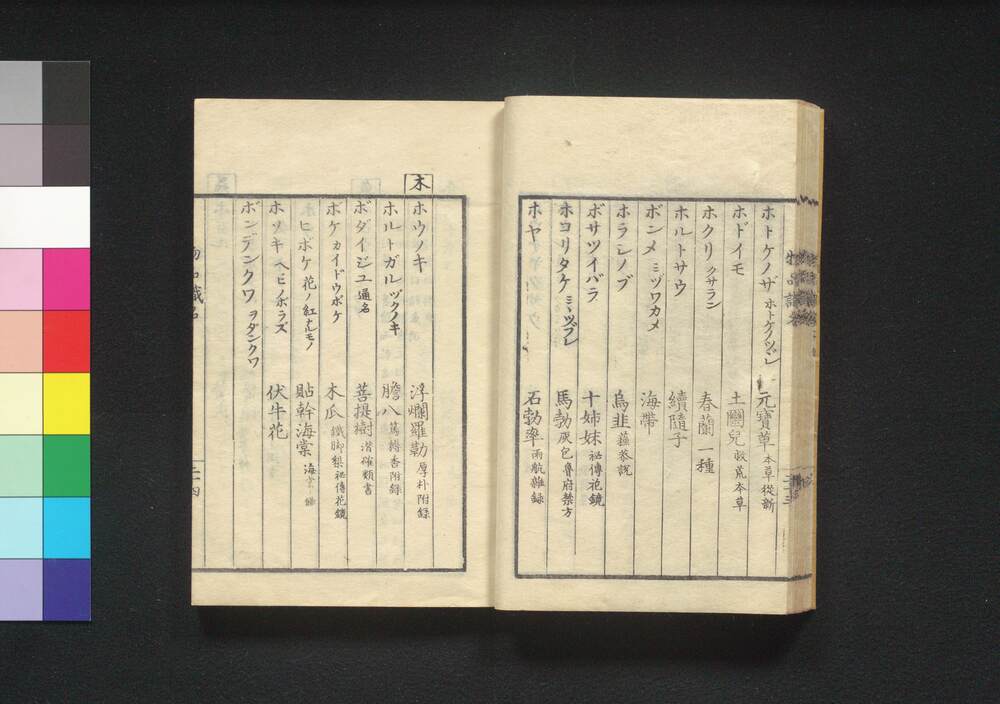 ホトケノザ ホトケノツヾレ 元寶草 本草從新
ホドイモ 土圞兒 救荒本草
ホクリ クサラン 春蘭一種
ホルトサウ 續隨子
ボンメ ミヅワカメ 海帶
ホラシノブ 烏韭 蘓恭説
ボサツイバラ 十姉妹 祕傳花鏡
ホコリタケ ミヽツブレ 馬勃 灰包 魯府禁方
ホヤ 石勃卒 雨航雜録
木
ホウノキ 浮爛羅勒 厚朴附録
ホルトガル ヅクノキ 膽八 篤耨香附録
ボダイジユ 通名 菩提樹 潜確類書
ボケ カイドウボケ 木瓜 鐵脚梨 祕傳花鏡
ヒボケ 花ノ紅ナルモノ 貼幹海棠
ホソキ ヘビノボラズ 伏牛花
ボンデンクワ ヲダンクワ
物品識名
二十四